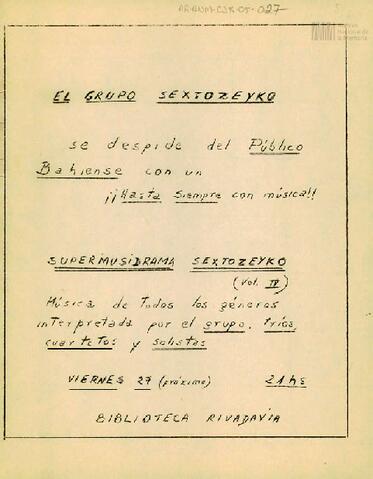 AR-ANM-CJR-OT-027
Archivo
Nacional de
la Memoria
EL GRUPO SEXTOZEYKO
se despide del Público
Bahiense con un
¡¡Hasta Siempre con música!!
SUPERMUSIDRAMA SEXTOZEYKO
(Vol. IV)
Música de Todos los géneros
interpretada por el grupo, tríos,
cuartetos y solistas
VIERNES 27 (próximo) 21 hs
BIBLIOTECA RIVADAVIA